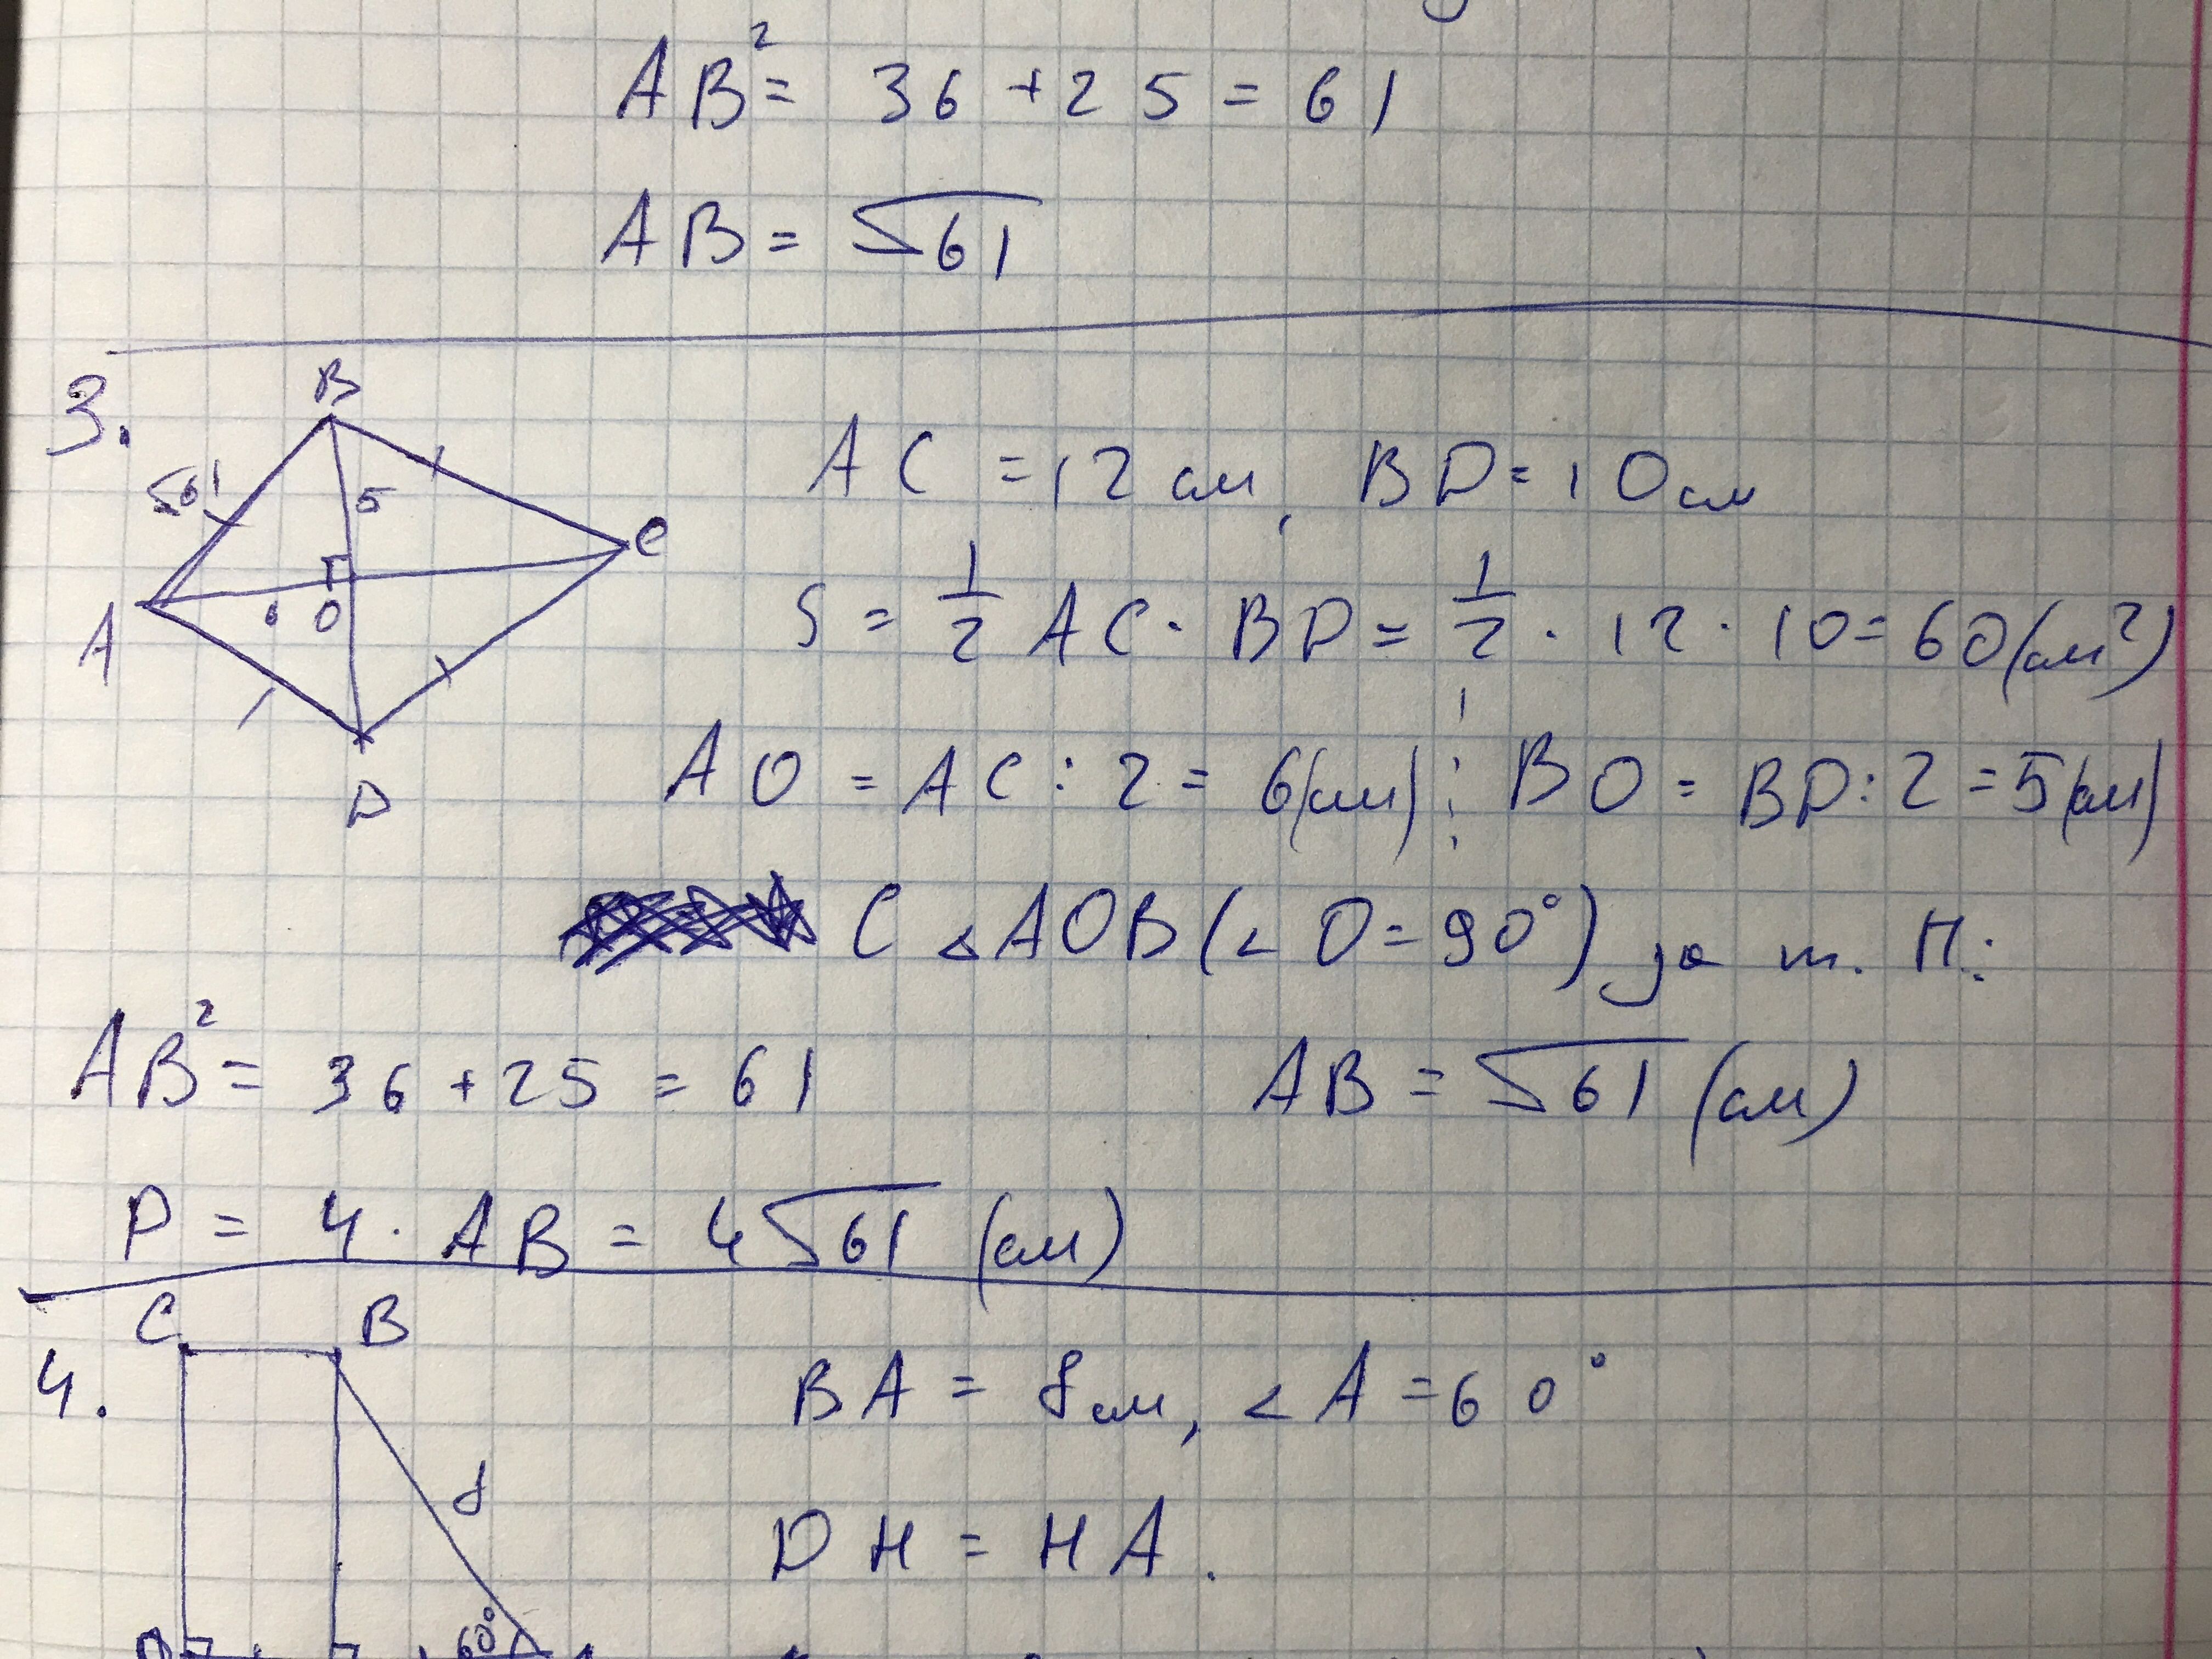 AB² = 36 + 25 = 61
AB = √61
3.
B
√61
5
C
A
6
O
D
AC = 12 см, BD = 10 см
S = 1/2 AC · BD = 1/2 · 12 · 10 = 60 (см²)
AO = AC : 2 = 6 (см) ; BO = BD : 2 = 5 (см)
С △AOB (∠O = 90°) за т. П:
AB² = 36 + 25 = 61 AB = √61 (см)
P = 4 · AB = 4√61 (см)
4.
C B
8
60°
D
BA = 8 см, ∠A = 60°
DH = HA.